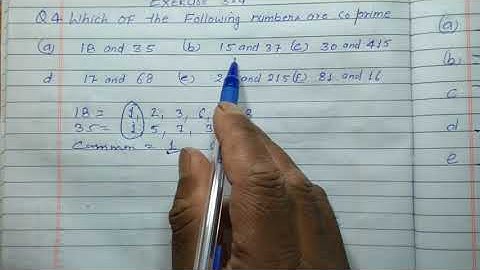 EXERCISE 3.4
Q4. Which of the Following numbers are co prime
(a) 18 and 35 (b) 15 and 37 (c) 30 and 415
d 17 and 68 (e) and 215 (f) 81 and 16
18 = 1, 2, 3, 6,
35 = 1, 5, 7,
Common = 1
(a)
(b)
c
d
e